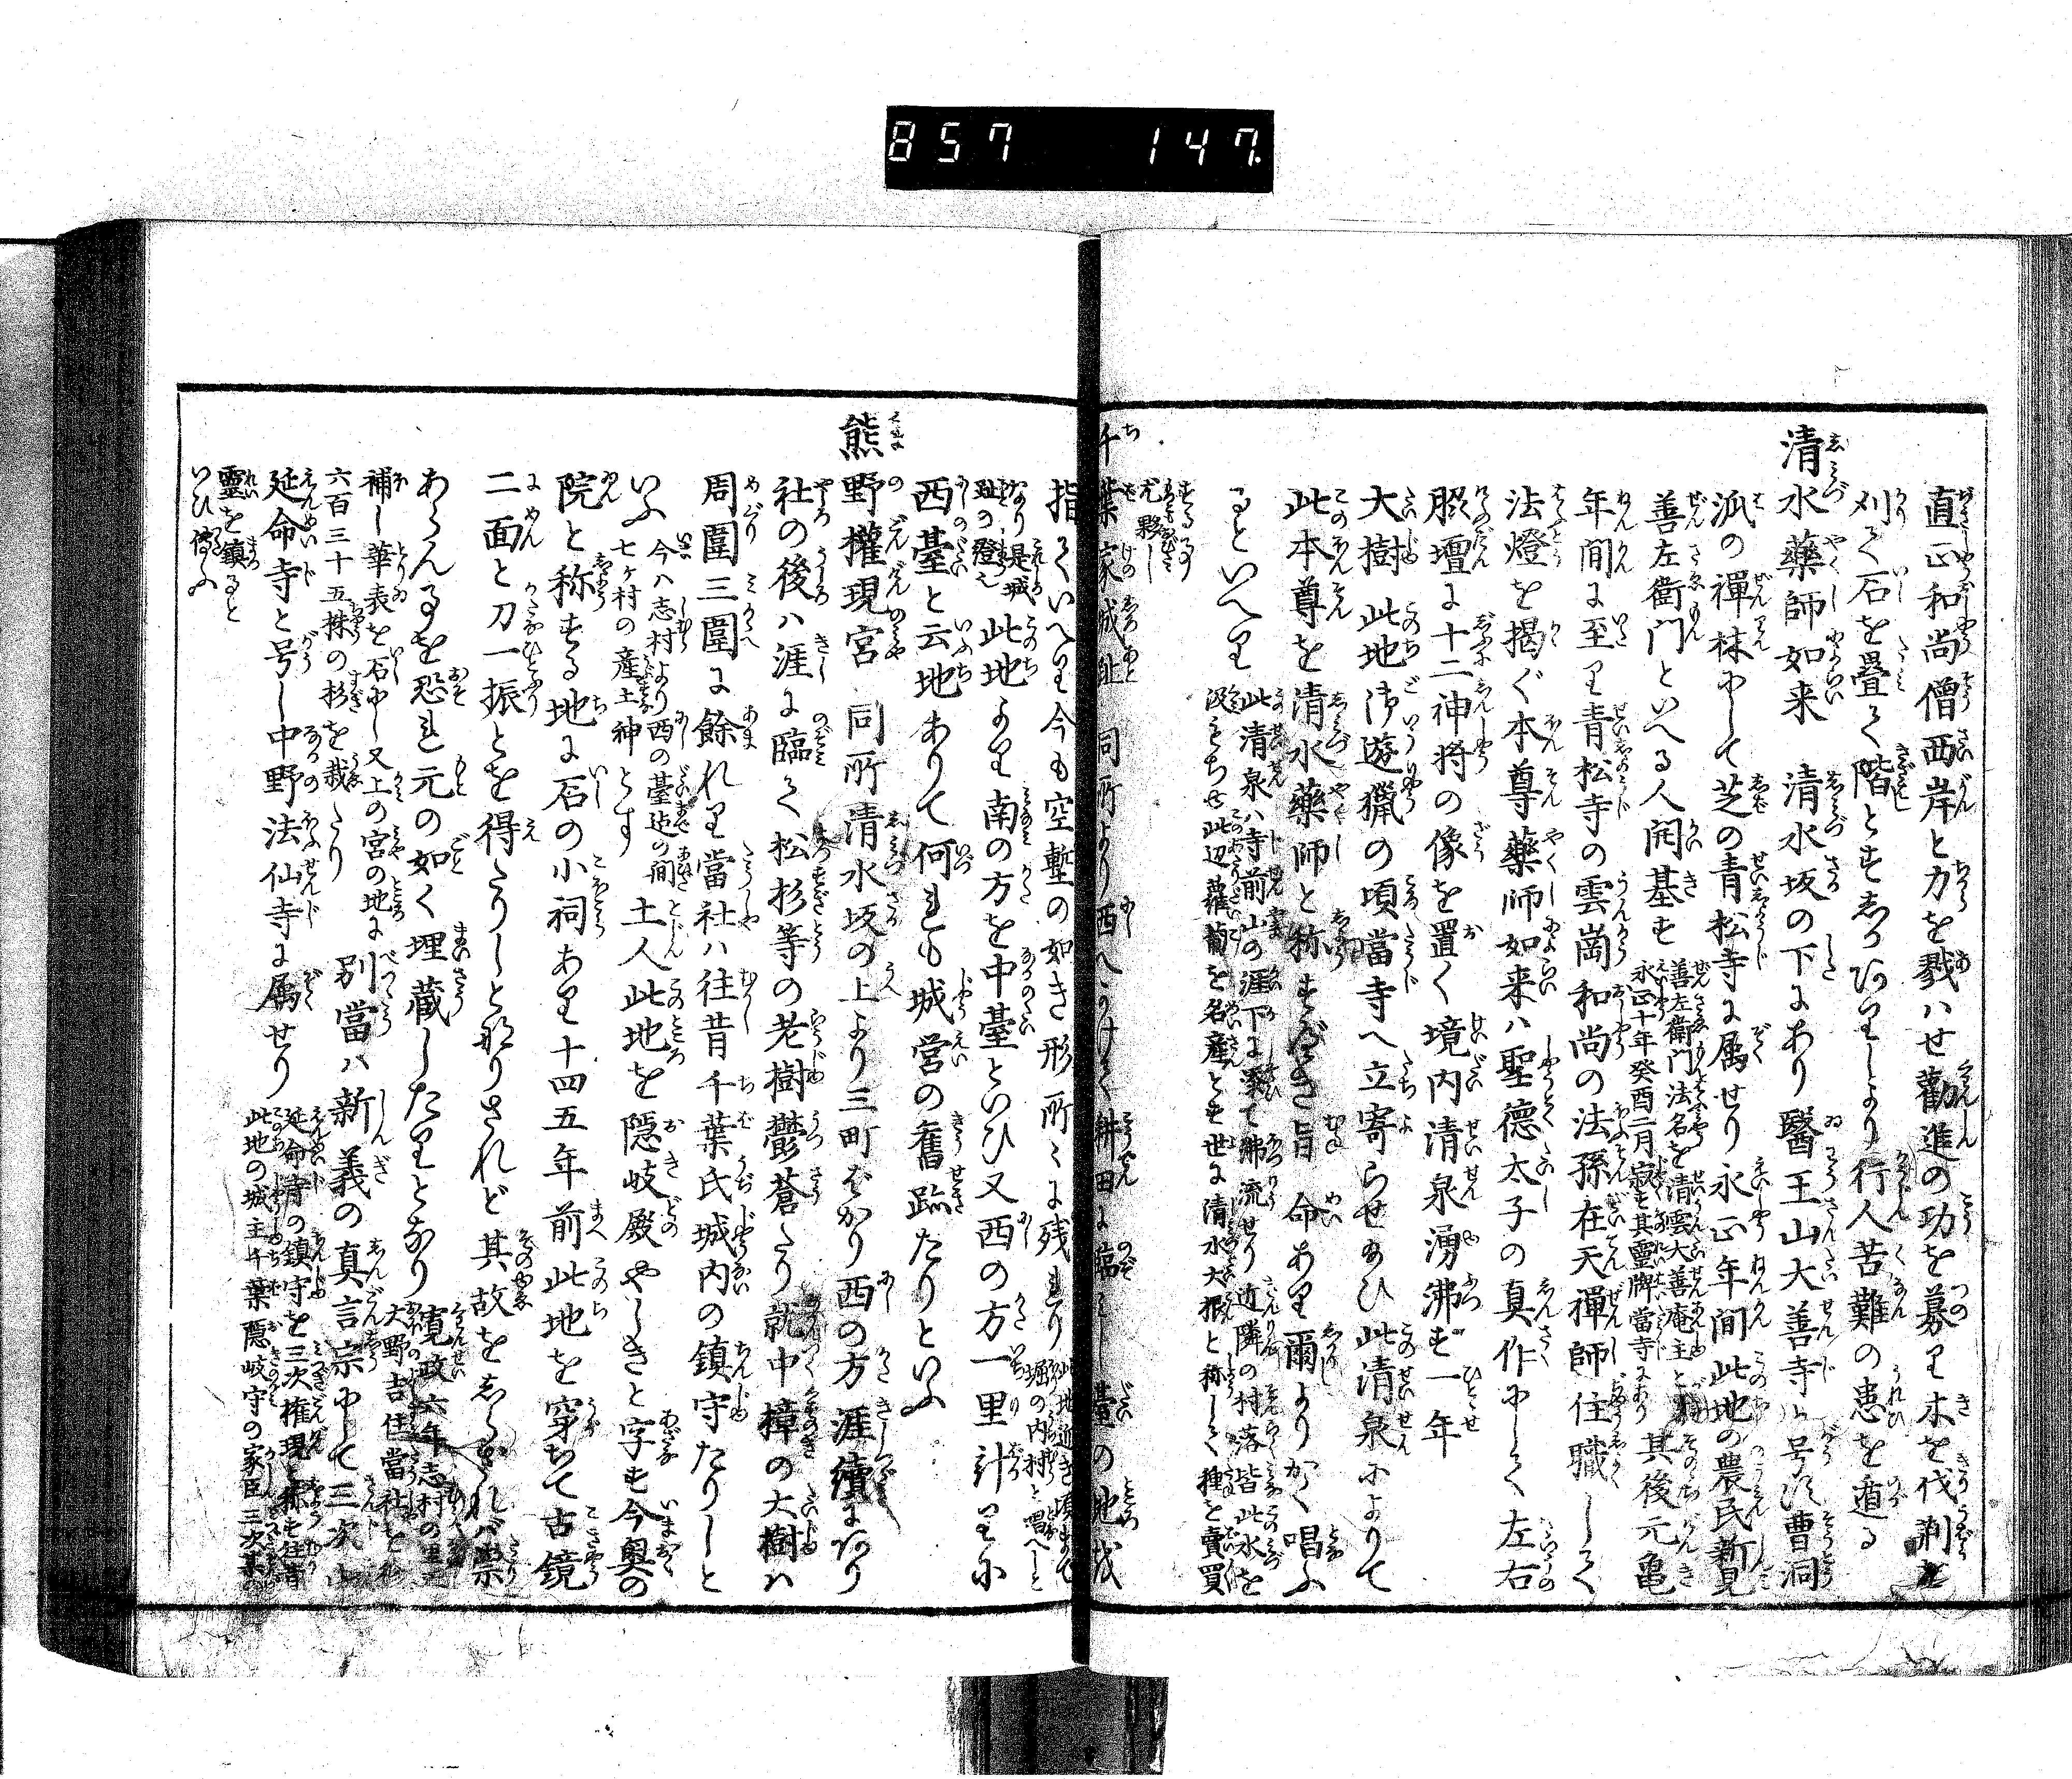 857 147.
直正和尚僧西岸と力を戮ハせ勧進の功を募り木を伐荊を
刈て石を畳て階とすしかありしより行人苦難の患を遁る
清水藥師如来 清水坂の下にあり醫王山大善寺と号す曹洞
派の禪林にして芝の青松寺に属せり永正年間此地の農民新見
善左衛門といへる人開基す
善左衛門法名を清雲大善庵主と
永正十年癸酉二月寂す其霊牌當寺にあり
其後元亀
年間に至り青松寺の雲崗和尚の法孫在天禪師住職して
法燈を掲ぐ本尊藥師如来ハ聖徳太子の真作にして左右
脇壇に十二神将の像を置く境内清泉湧沸す一年
大樹此地御遊獵の頃當寺へ立寄らせ給ひ此清泉によりて
此本尊を清水藥師と称すべき旨 命あり爾よりかく唱ふ
るといへり
此清泉ハ寺前山の涯下に湊て沸流せり近隣の村落皆此水を
汲もちゆ此辺蘿蔔を名産とす世に清水大根と称して種を賣買
する事
尤夥し
千葉家城趾 同所より西へつけて耕田に臨みし臺の地を
指ていへり今も空塹の如き形所々に残れり
此地近き頃まて
堀の内村と唱へしと
なり是城
趾の證え
此地より南の方を中臺といひ又西の方一里計りに
西臺と云地ありて何れも城営の舊跡たりといふ
熊野權現宮 同所清水坂の上より三町ばかり西の方涯續にあり
社の後ハ涯に臨て松杉等の老樹鬱蒼たり就中樟の大樹ハ
周圍三圍に餘れり當社ハ往昔千葉氏城内の鎮守たりしと
いふ
今ハ志村より西の臺迠の間
七ヶ村の産土神とす
土人此地を隠岐殿やしきと字す今奥の
院と称する地に石の小祠あり十四五年前此地を穿ちて古鏡
二面と刀一振とを得たりしと なりされど其故をしらざれバ祟
あらん事を恐れ元の如く埋蔵したりとなり
寛政六年志村の里正
大野吉住當社を修
補し華表を石にし又上の宮の地に
六百三十五株の杉を栽たり
別當ハ新義の真言宗にして三次山
延命寺と号し中野法仙寺に属せり
延命寺の鎮守を三次権現と称す往昔
此地の城主千葉隠岐守の家臣三次某の
霊を鎮ると
いひ傳ふ